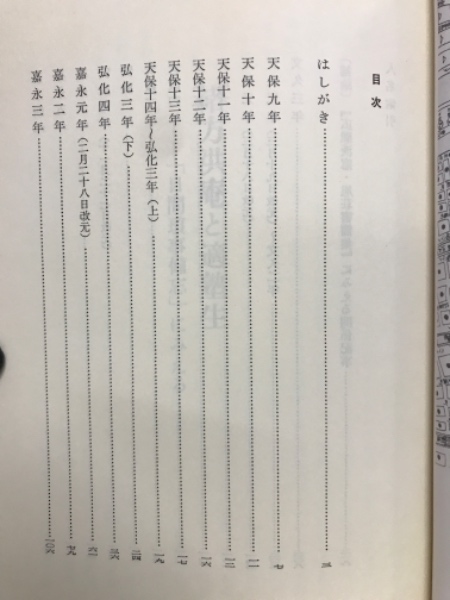 目次
はしがき……三
天保九年……七
天保十年……一一
天保十一年……一二
天保十二年……一六
天保十三年……一七
天保十四年～弘化三年(上)……一九
弘化三年(下)……二四
弘化四年……三六
嘉永元年(二月二十八日改元)……六一
嘉永二年……七九
嘉永三年……一〇六